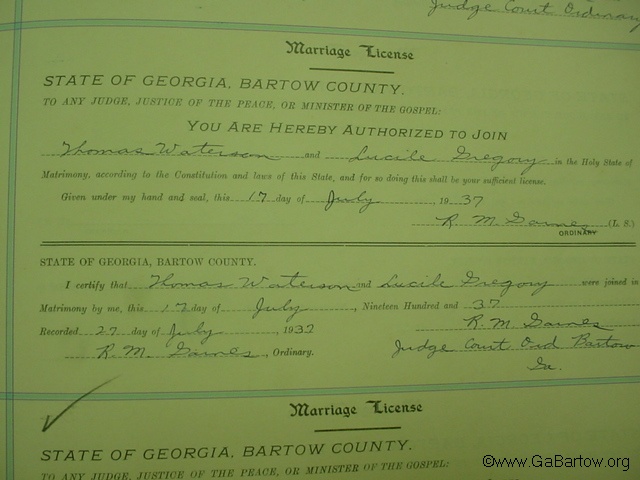 Judge Court Ordinary
Marriage License
STATE OF GEORGIA, BARTOW COUNTY.
TO ANY JUDGE, JUSTICE OF THE PEACE, OR MINISTER OF THE GOSPEL:
YOU ARE HEREBY AUTHORIZED TO JOIN
Thomas Waterson and Lucile Gregory in the Holy State of
Matrimony, according to the Constitution and laws of this State, and for so doing this shall be your sufficient license.
Given under my hand and seal, this 17 day of July 1937
R. M. Gaines (L. S.)
ORDINARY
STATE OF GEORGIA, BARTOW COUNTY.
I certify that Thomas Waterson and Lucile Gregory were joined in
Matrimony by me, this 17 day of July, Nineteen Hundred and 37
Recorded 27 day of July, 1937 R. M. Gaines
R. M. Gaines, Ordinary. Judge Court Ord Bartow
Ga.
Marriage License
STATE OF GEORGIA, BARTOW COUNTY.
TO ANY JUDGE, JUSTICE OF THE PEACE, OR MINISTER OF THE GOSPEL:
©www.GaBartow.org